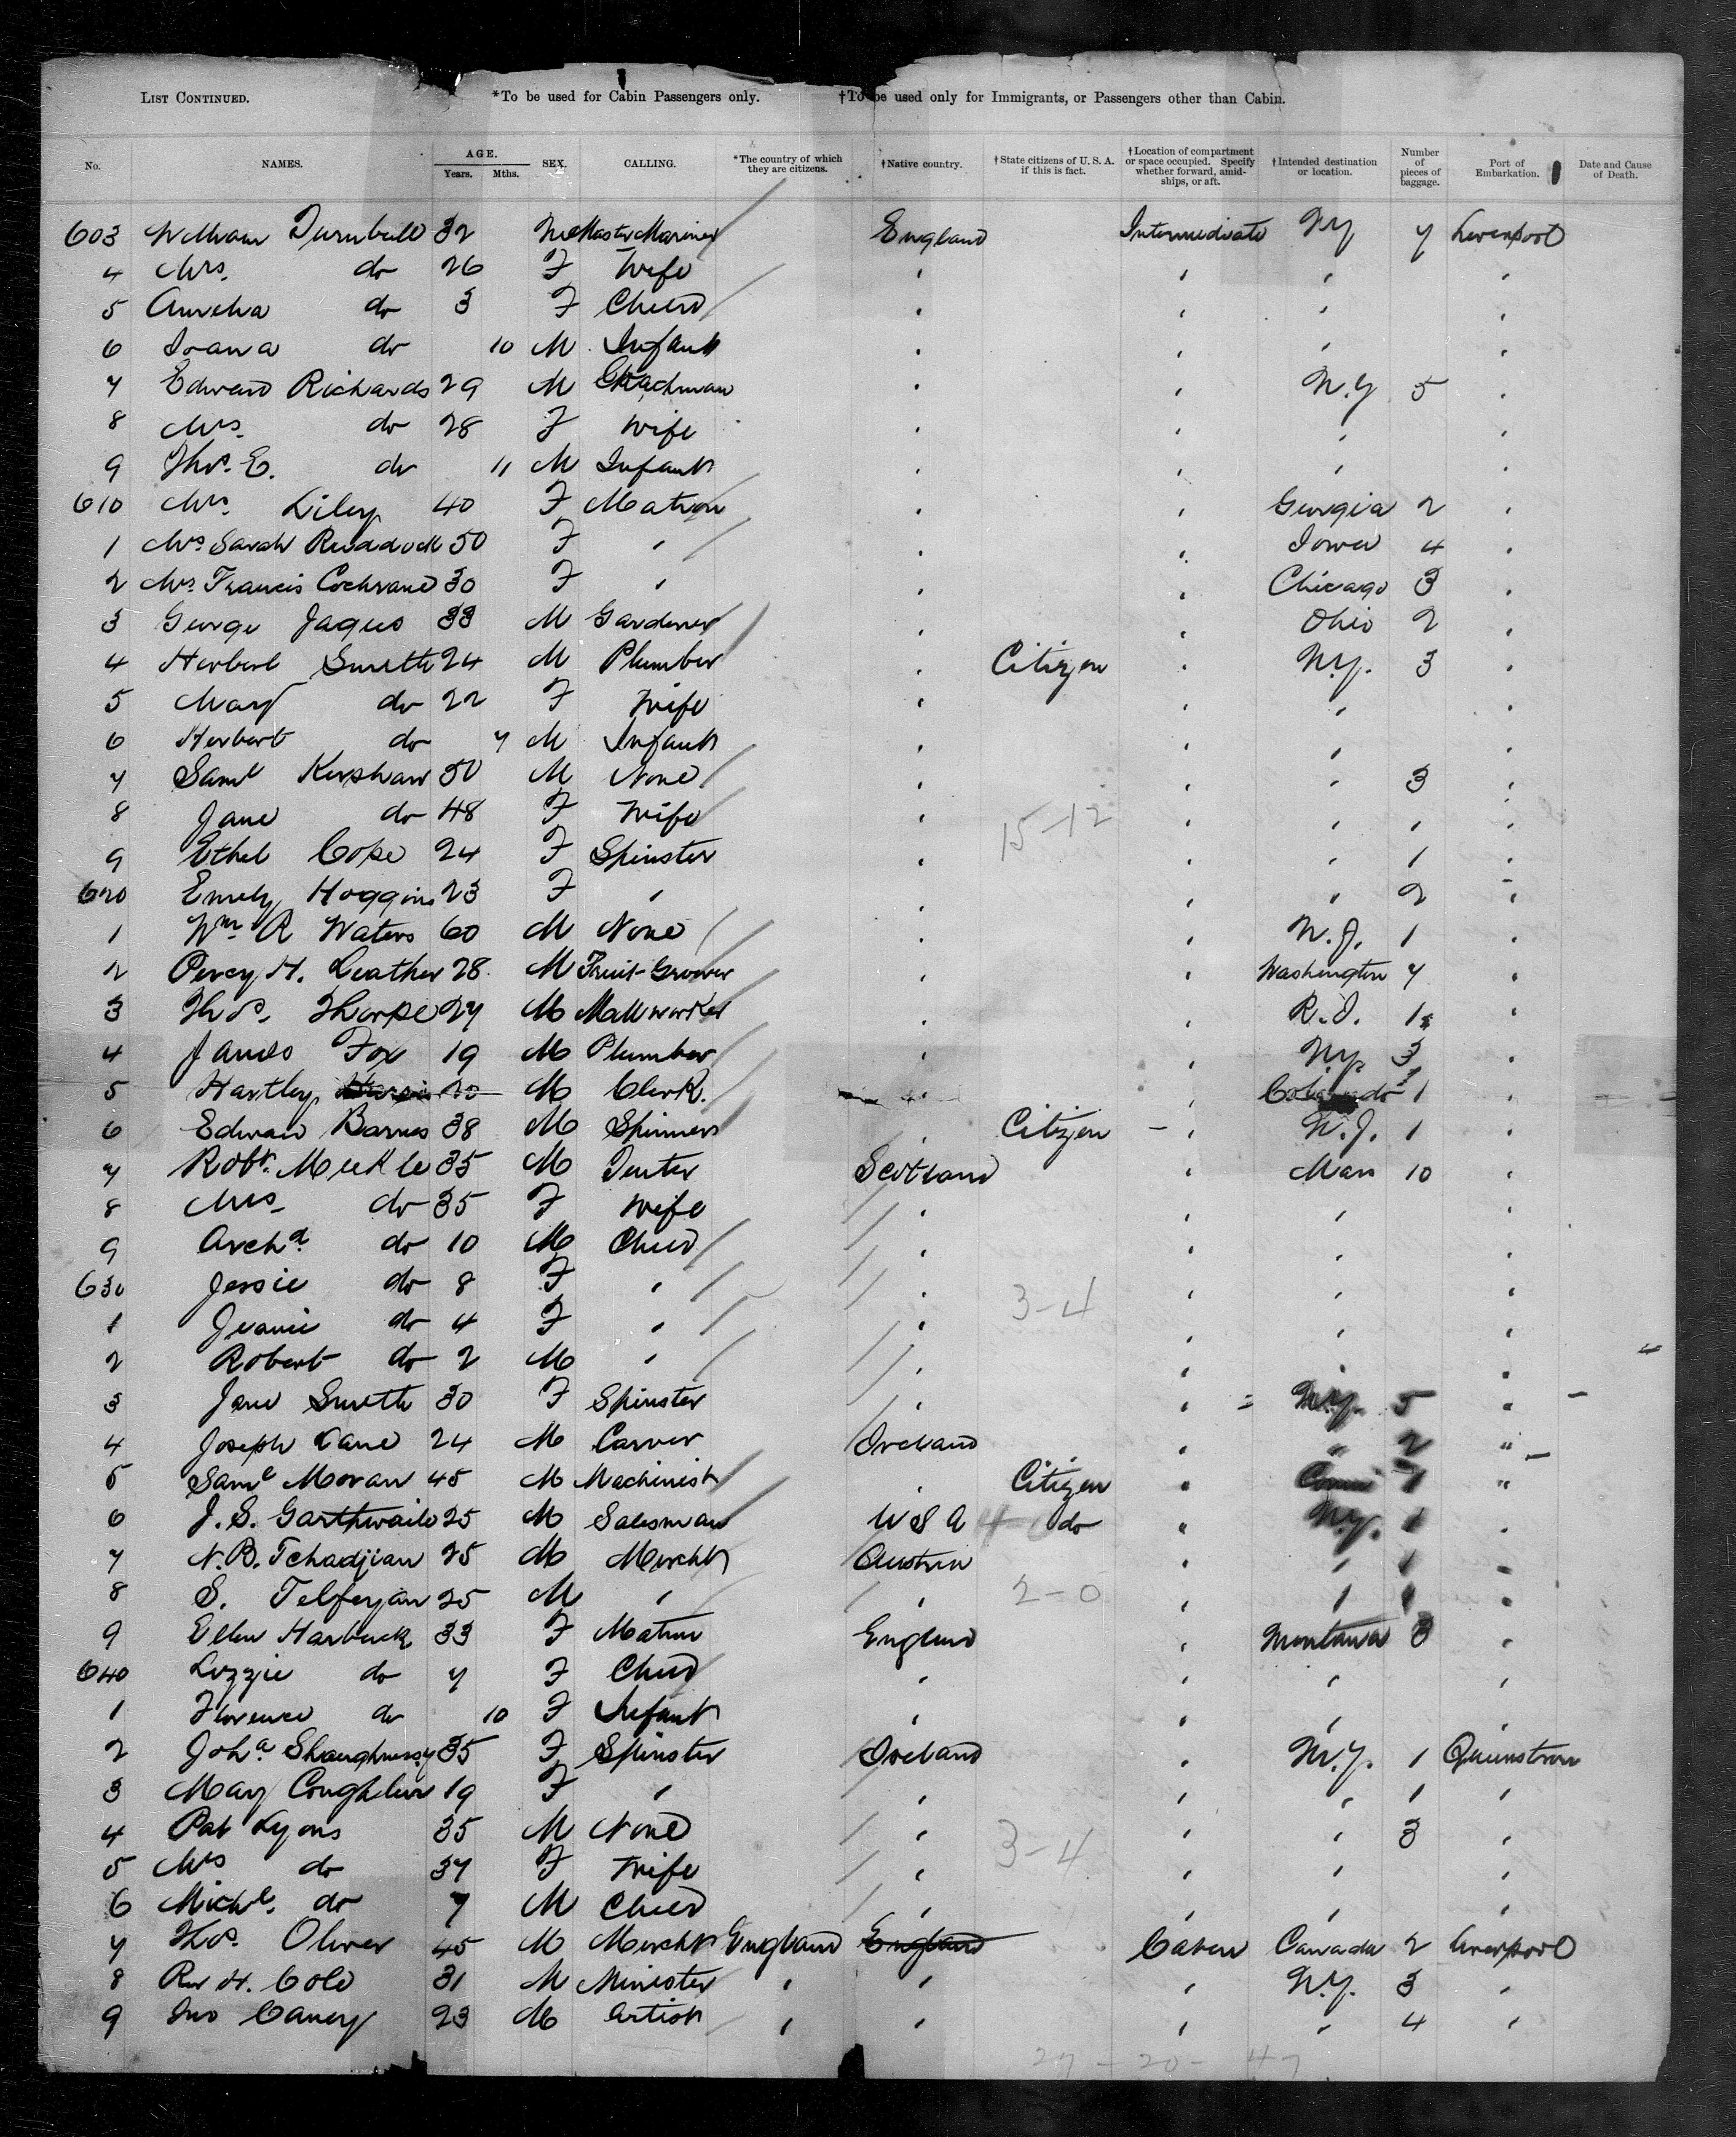 LIST CONTINUED. *To be used for Cabin Passengers only. †To be used only for Immigrants, or Passengers other than Cabin.
No. NAMES. AGE. Years. Mths. SEX. CALLING. *The country of which they are citizens. †Native country. †State citizens of U. S. A. if this is fact. †Location of compartment or space occupied. Specify whether forward, amidships, or aft. †Intended destination or location. Number of pieces of baggage. Port of Embarkation. Date and Cause of Death.
603 William Turnbull 32 M Master Mariner England Intermediate NY 7 Liverpool
4 Mrs. do 26 F Wife " " " "
5 Aurelia do 3 F Child " " " "
6 do 10 M Infant " " " "
7 Edward Richards 29 M Coachman " " N.Y 5 "
8 Mrs. do 28 F Wife " " " "
9 Thos. E. do 11 M Infant " " " "
610 Mrs. Liley 40 F Matron " " Georgia 2 "
1 Mrs Sarah Ruddock 50 F " " " Iowa 4 "
2 Mrs. Francis Cochrane 30 F " " " Chicago 3 "
3 George Jaques 33 M Gardener " " Ohio 2 "
4 Herbert Smith 24 M Plumber " Citizen " N.Y. 3 "
5 Mary do 22 F Wife " " " "
6 Herbert do 7 M Infant " " " "
7 Saml Kershaw 50 M None " " " 3 "
8 Jane do 48 F Wife " 15-12 " " " "
9 Ethel Cope 24 F Spinster " " " 1 "
620 Emily Hoggins 23 F " " " " 2 "
1 Wm. R Waters 60 M None " " N.J. 1 "
2 Percy H. Leather 28 M Fruit-Grower " " Washington 7 "
3 Thos. Thorpe 27 M " " R.I. 1 "
4 James Fox 19 M Plumber " " NY. 3 "
5 Hartley 20 M Clerk. " " Colorado 1 "
6 Edward Barnes 38 M Spinner " Citizen " N.J. 1 "
7 Robt. Meekle 35 M Tenter Scotland " Mass 10 "
8 Mrs do 35 F Wife " " " "
9 Archd. do 10 M Child " " " "
630 Jessie do 8 F " " 3-4 " " "
1 Jeanie do 4 F " " " " "
2 Robert do 2 M " " " " "
3 Jane Smith 30 F Spinster " " N.Y. 5 "
4 Joseph Cane 24 M Carver Ireland " " 2 "
5 Saml Moran 45 M Machinist " Citizen " Conn 1 "
6 J. S. Garthwaite 25 M Salesman U S A do " N.Y. 1 "
7 N. B. Tchadjian 25 M Mercht Austria " " 1 "
8 S. Telfeyan 25 M " " 2-0 " " 1 "
9 Ellen Harbuck 33 F Matron England " Montana 3 "
640 Lizzie do 7 F Child " " " "
1 Florence do 10 F Infant " " " "
2 Joha. Shaughnessy 35 F Spinster Ireland " N.Y. 1 Queenstown
3 Mary Coughlin 19 F " " " " 1 "
4 Pat Lyons 35 M None " 3-4 " " 3 "
5 Mrs do 37 F Wife " " " "
6 Michl. do 7 M Child " " " "
7 Thos. Oliver 45 M Mercht England England Cabin Canada 2 Liverpool
8 Rev H. Cole 31 M Minister " " " N.Y. 3 "
9 Jno Caney 23 M Artist " " " " 4 "
27 - 20 - 47